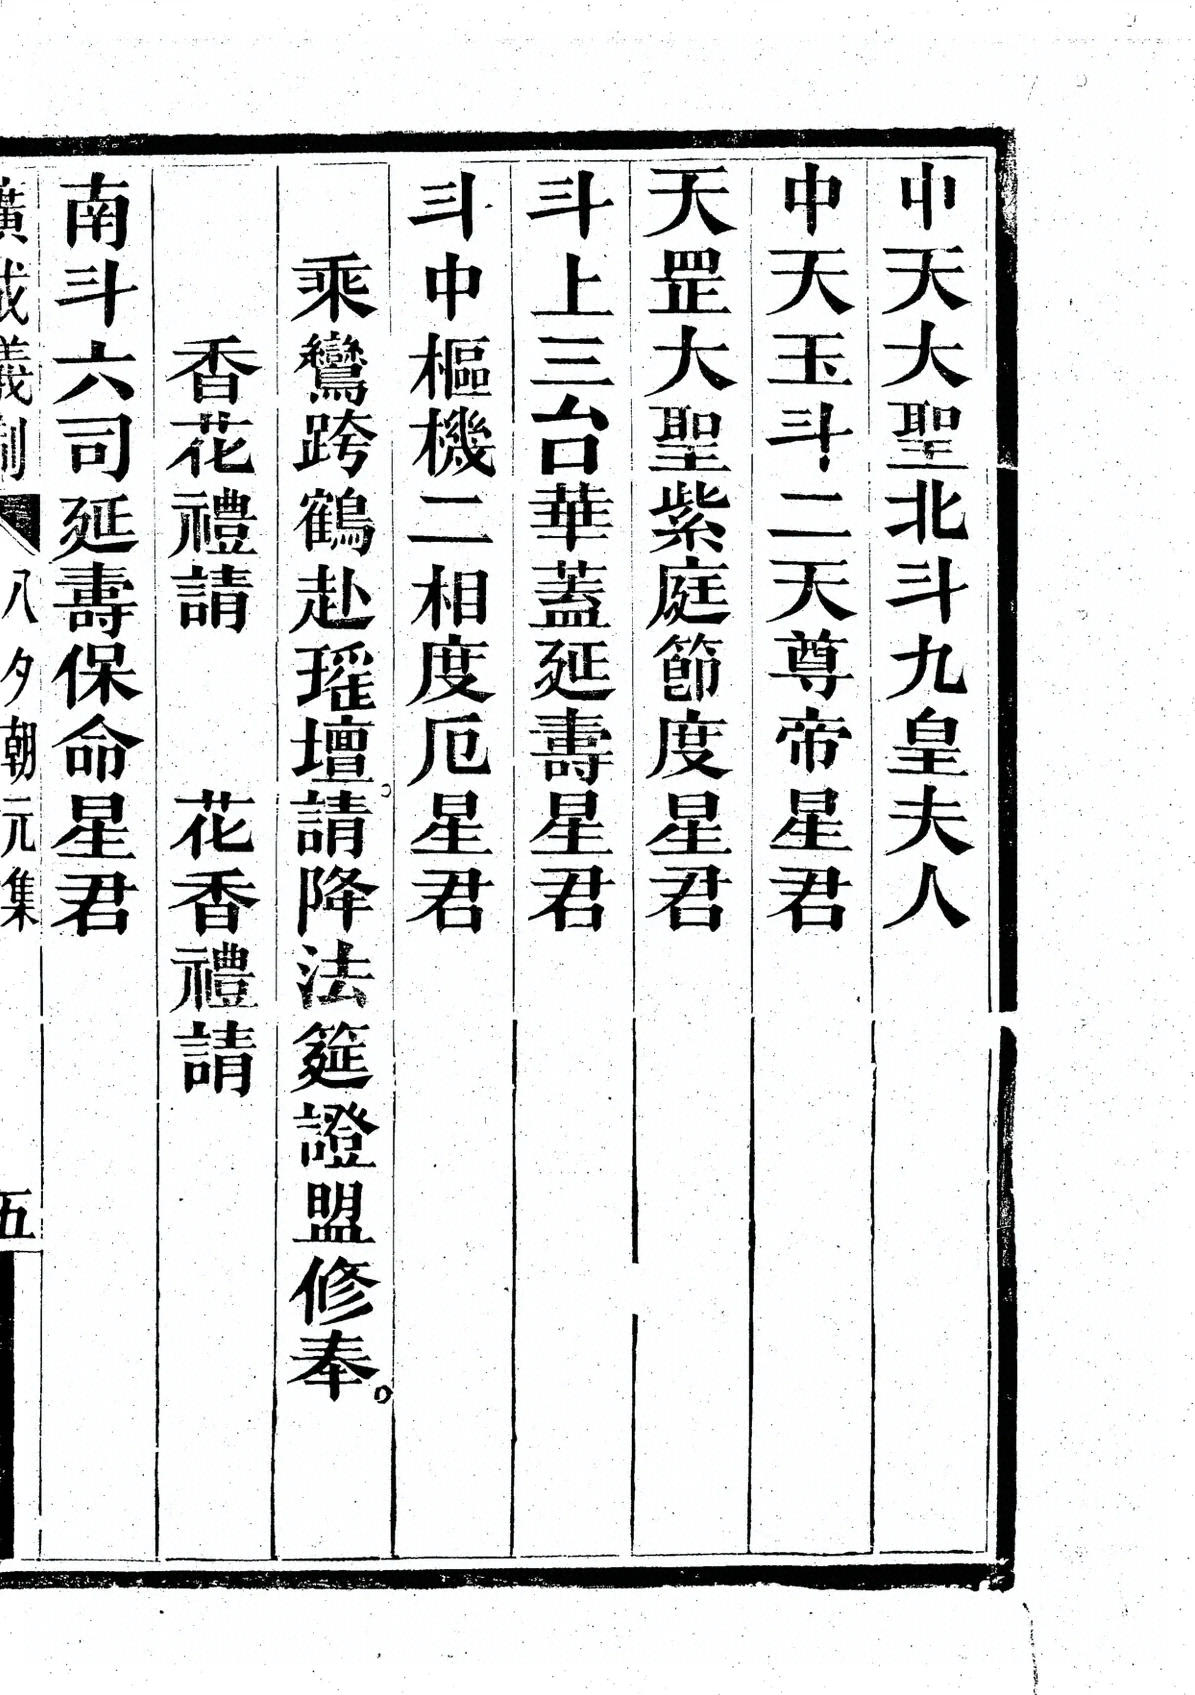 中天大聖北斗九皇夫人
中天玉斗二天尊帝星君
天罡大聖紫庭節度星君
斗上三台華蓋延壽星君
斗中樞機二相度厄星君
乘鸞跨鶴赴瑶壇。請降法筵證盟修奉。
香花禮請　花香禮請
南斗六司延壽保命星君
廣成儀制　八夕朝元集　五